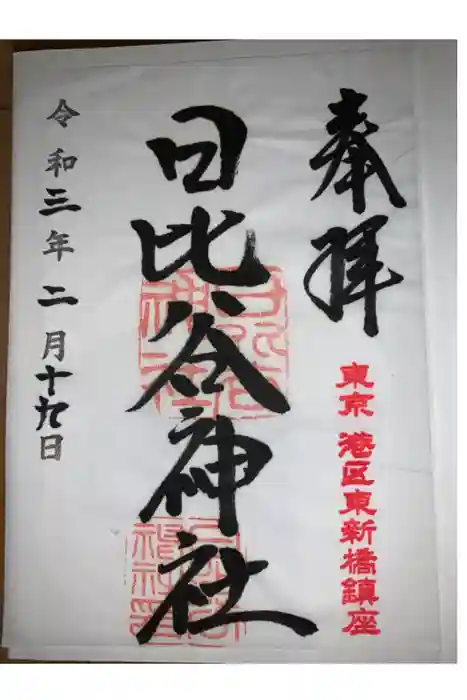 奉拝
東京 港区東新橋鎮座
日比谷神社
令和三年二月十九日